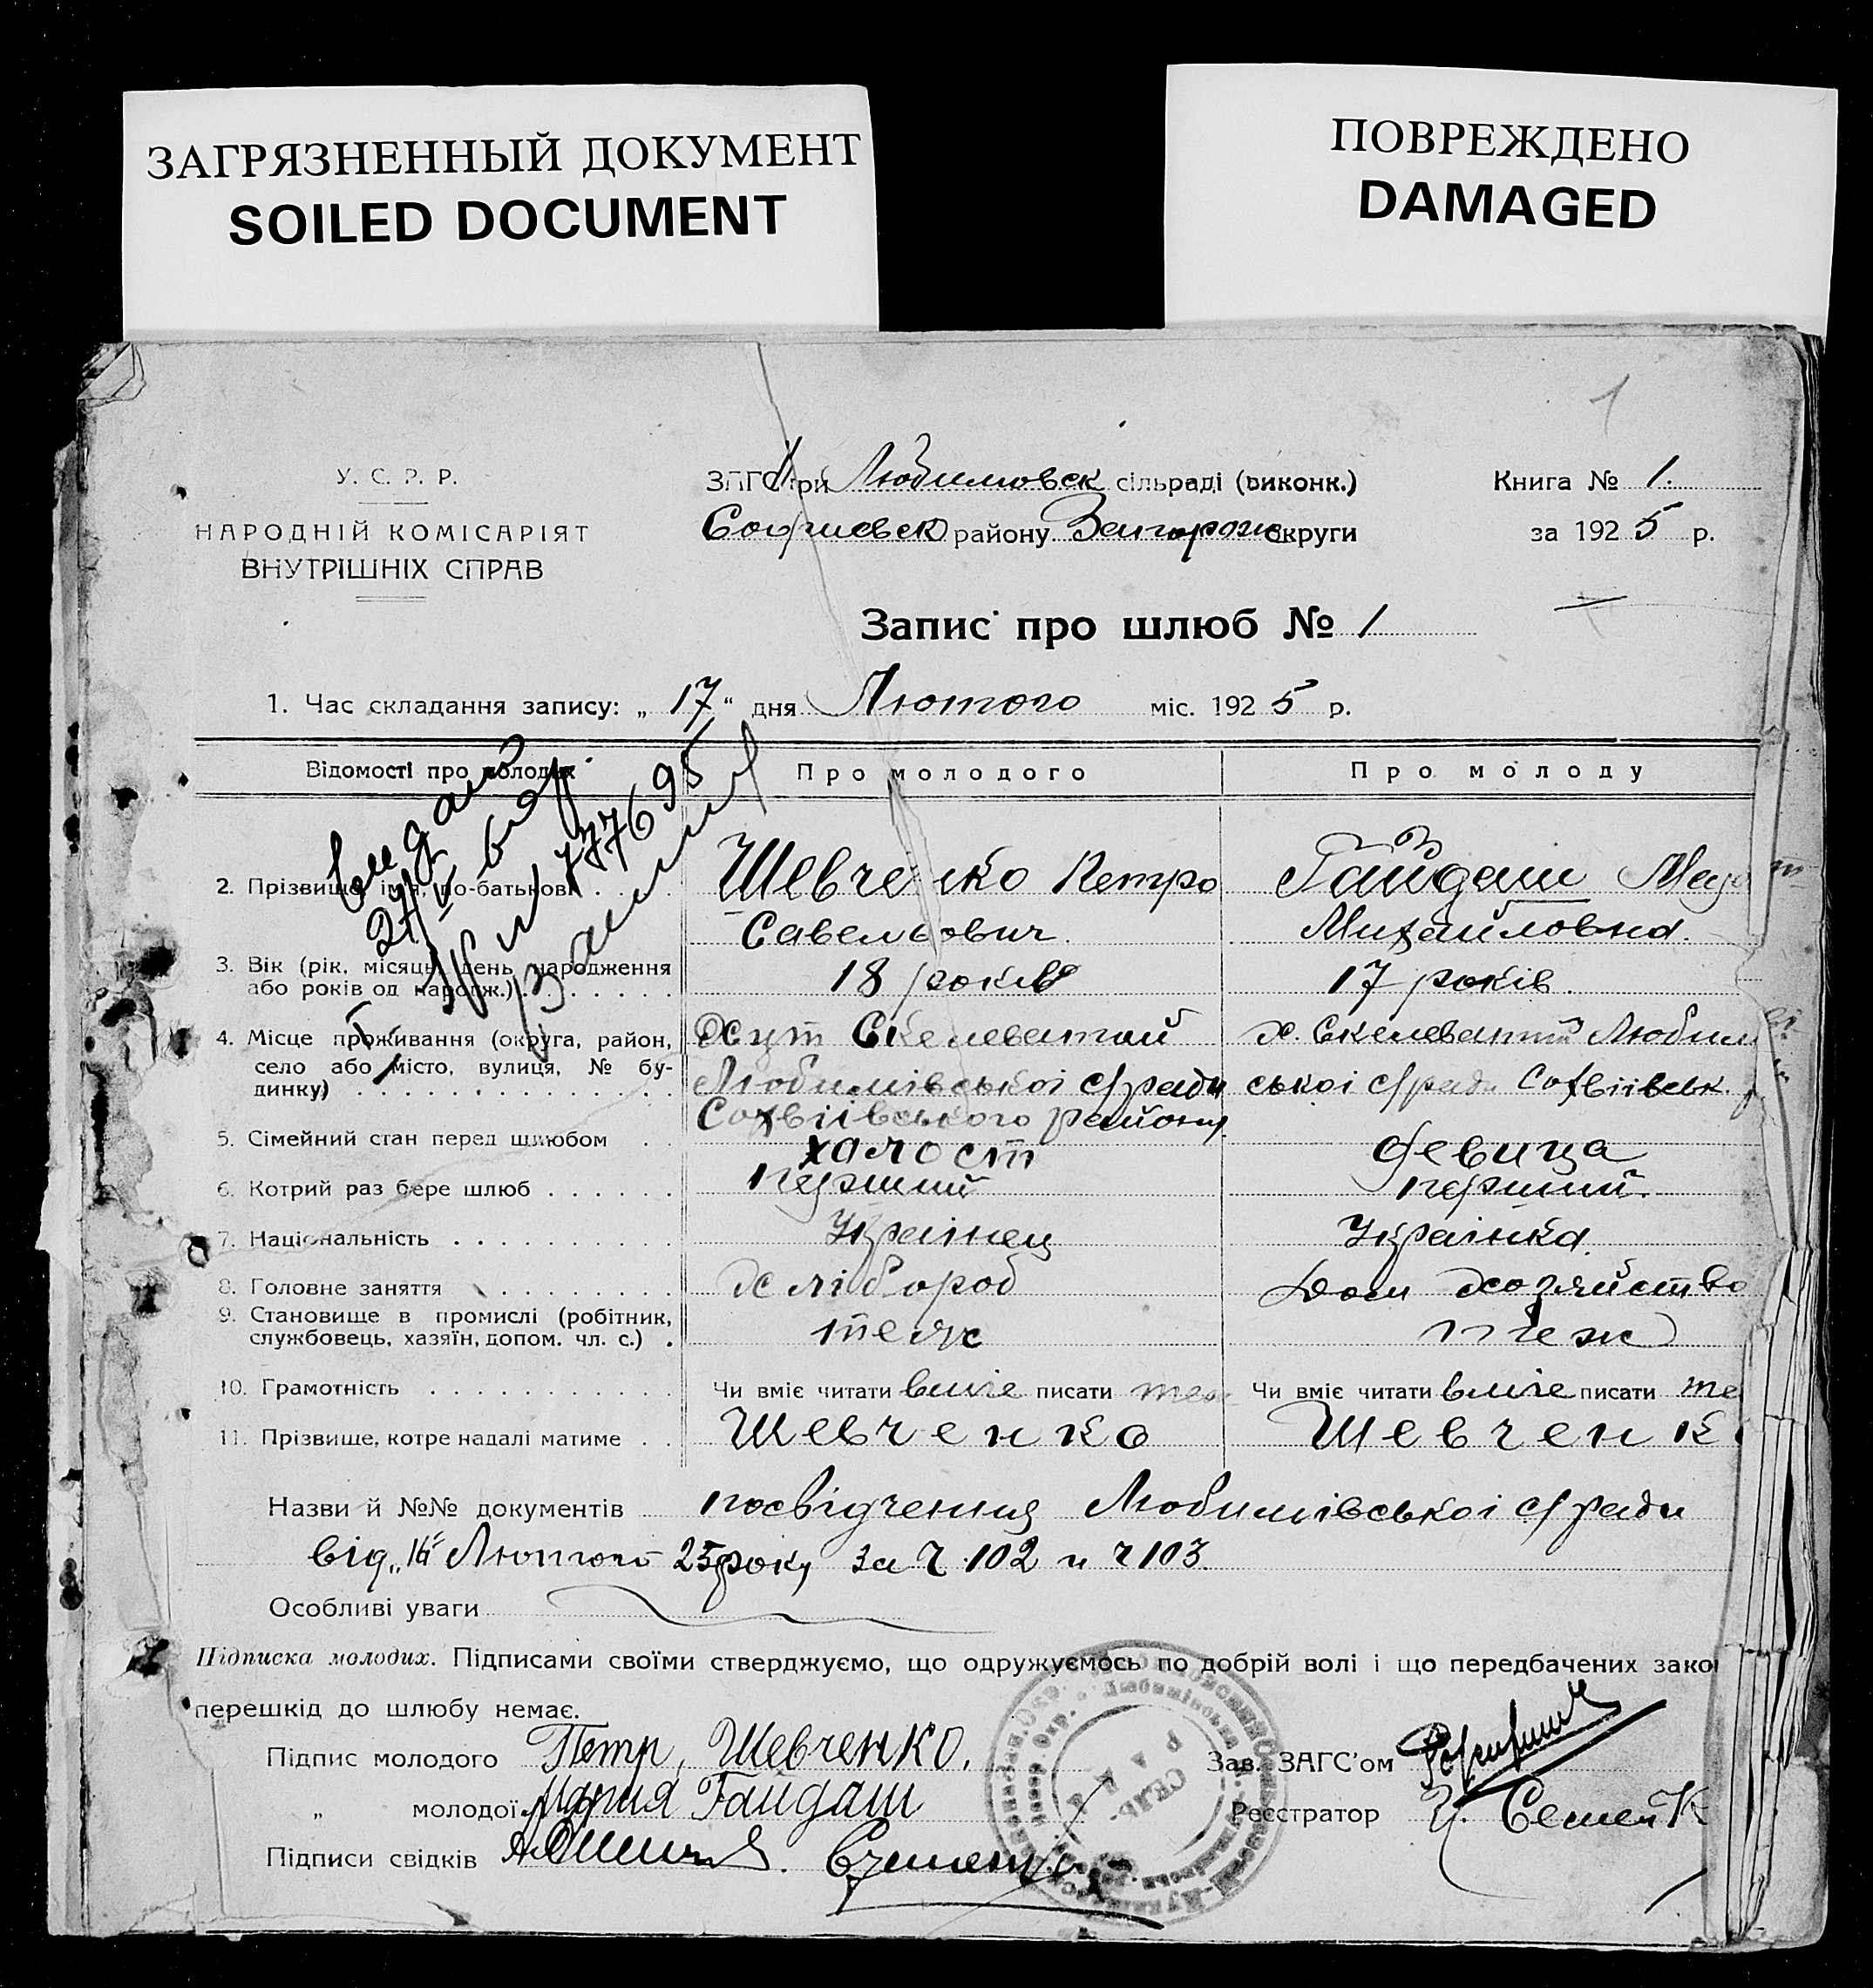 ЗАГРЯЗНЕННЫЙ ДОКУМЕНТ
SOILED DOCUMENT
ПОВРЕЖДЕНО
DAMAGED
1
У. С. Р. Р.
НАРОДНІЙ КОМІСАРІЯТ
ВНУТРІШНІХ СПРАВ
ЗАГС при Любимовск сільраді (виконк.)
Софиевск району Запорож округи
Книга № 1.
за 1925 р.
Запис про шлюб № 1
1. Час складання запису: „17“ дня Лютого міс. 1925 р.
Відомості про молодих
Про молодого
Про молоду
2. Прізвище, ім'я, по-батькові
Шевченко Петро
Савельович
Гайдаш
Михайловна.
3. Вік (рік, місяць, день народження
або років од народж.)
18 років
17 років.
4. Місце проживання (округа, район,
село або місто, вулиця, № бу-
динку)
Хут Скелеватий
Любимівської с/ради
Софвіівського району
х. Скелеватий Любим
ської с/ради Софвіівськ.
5. Сімейний стан перед шлюбом
холост
девица
6. Котрий раз бере шлюб
перший
перший.
7. Національність
Українец
Українка
8. Головне заняття
Хлібороб
Дом хозяйство
9. Становище в промислі (робітник,
службовець, хазяїн, допом. чл. с.)
теж
теж
10. Грамотність
Чи вміє читати вміє писати теж
Чи вміє читати вміє писати те
11. Прізвище, котре надалі матиме
Шевченко
Шевченк
Назви й №№ документів посвідчення Любимівської с/ради
від „16“ Лютого 25 року за ч 102 и ч 103.
Особливі уваги
Підписка молодих. Підписами своїми стверджуємо, що одружуємось по добрій волі і що передбачених зако
перешкід до шлюбу немає.
Підпис молодого Петр Шевченко.
„ молодої Мария Гайдаш
Підписи свідків
Зав. ЗАГС'ом
Реєстратор